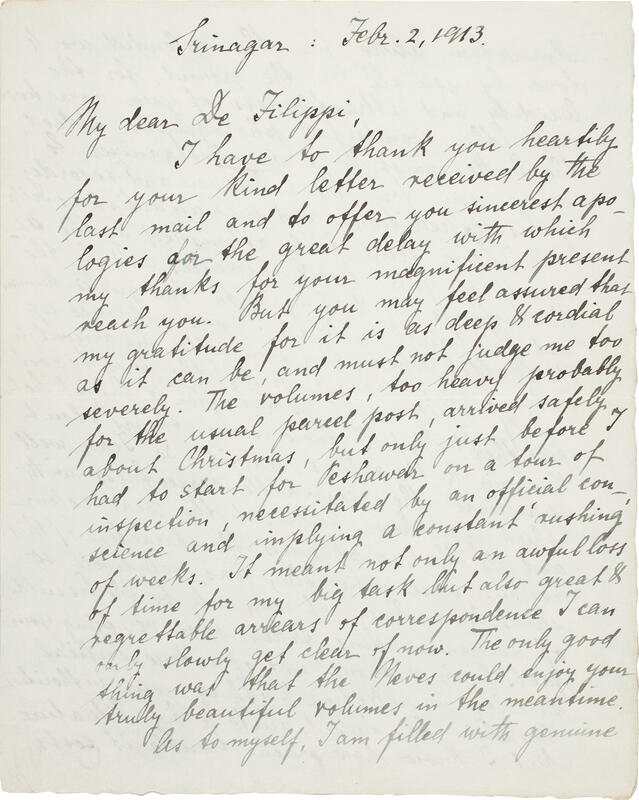 Srinagar : Febr. 2, 1913.
My dear De Filippi,
I have to thank you heartily
for your kind letter received by the
last mail and to offer you sincerest apo-
logies for the great delay with which
my thanks for your magnificent present
reach you. But you may feel assured that
my gratitude for it is as deep & cordial
as it can be, and must not judge me too
severely. The volumes, too heavy probably
for the usual parcel post, arrived safely
about Christmas, but only just before I
had to start for Peshawar on a tour of
inspection, necessitated by an official con-
science and implying a constant rushing
of weeks. It meant not only an awful loss
of time for my big task but also great &
regrettable arrears of correspondence I can
only slowly get clear of now. The only good
thing was that the Neves could enjoy your
truly beautiful volumes in the meantime.
As to myself, I am filled with genuine